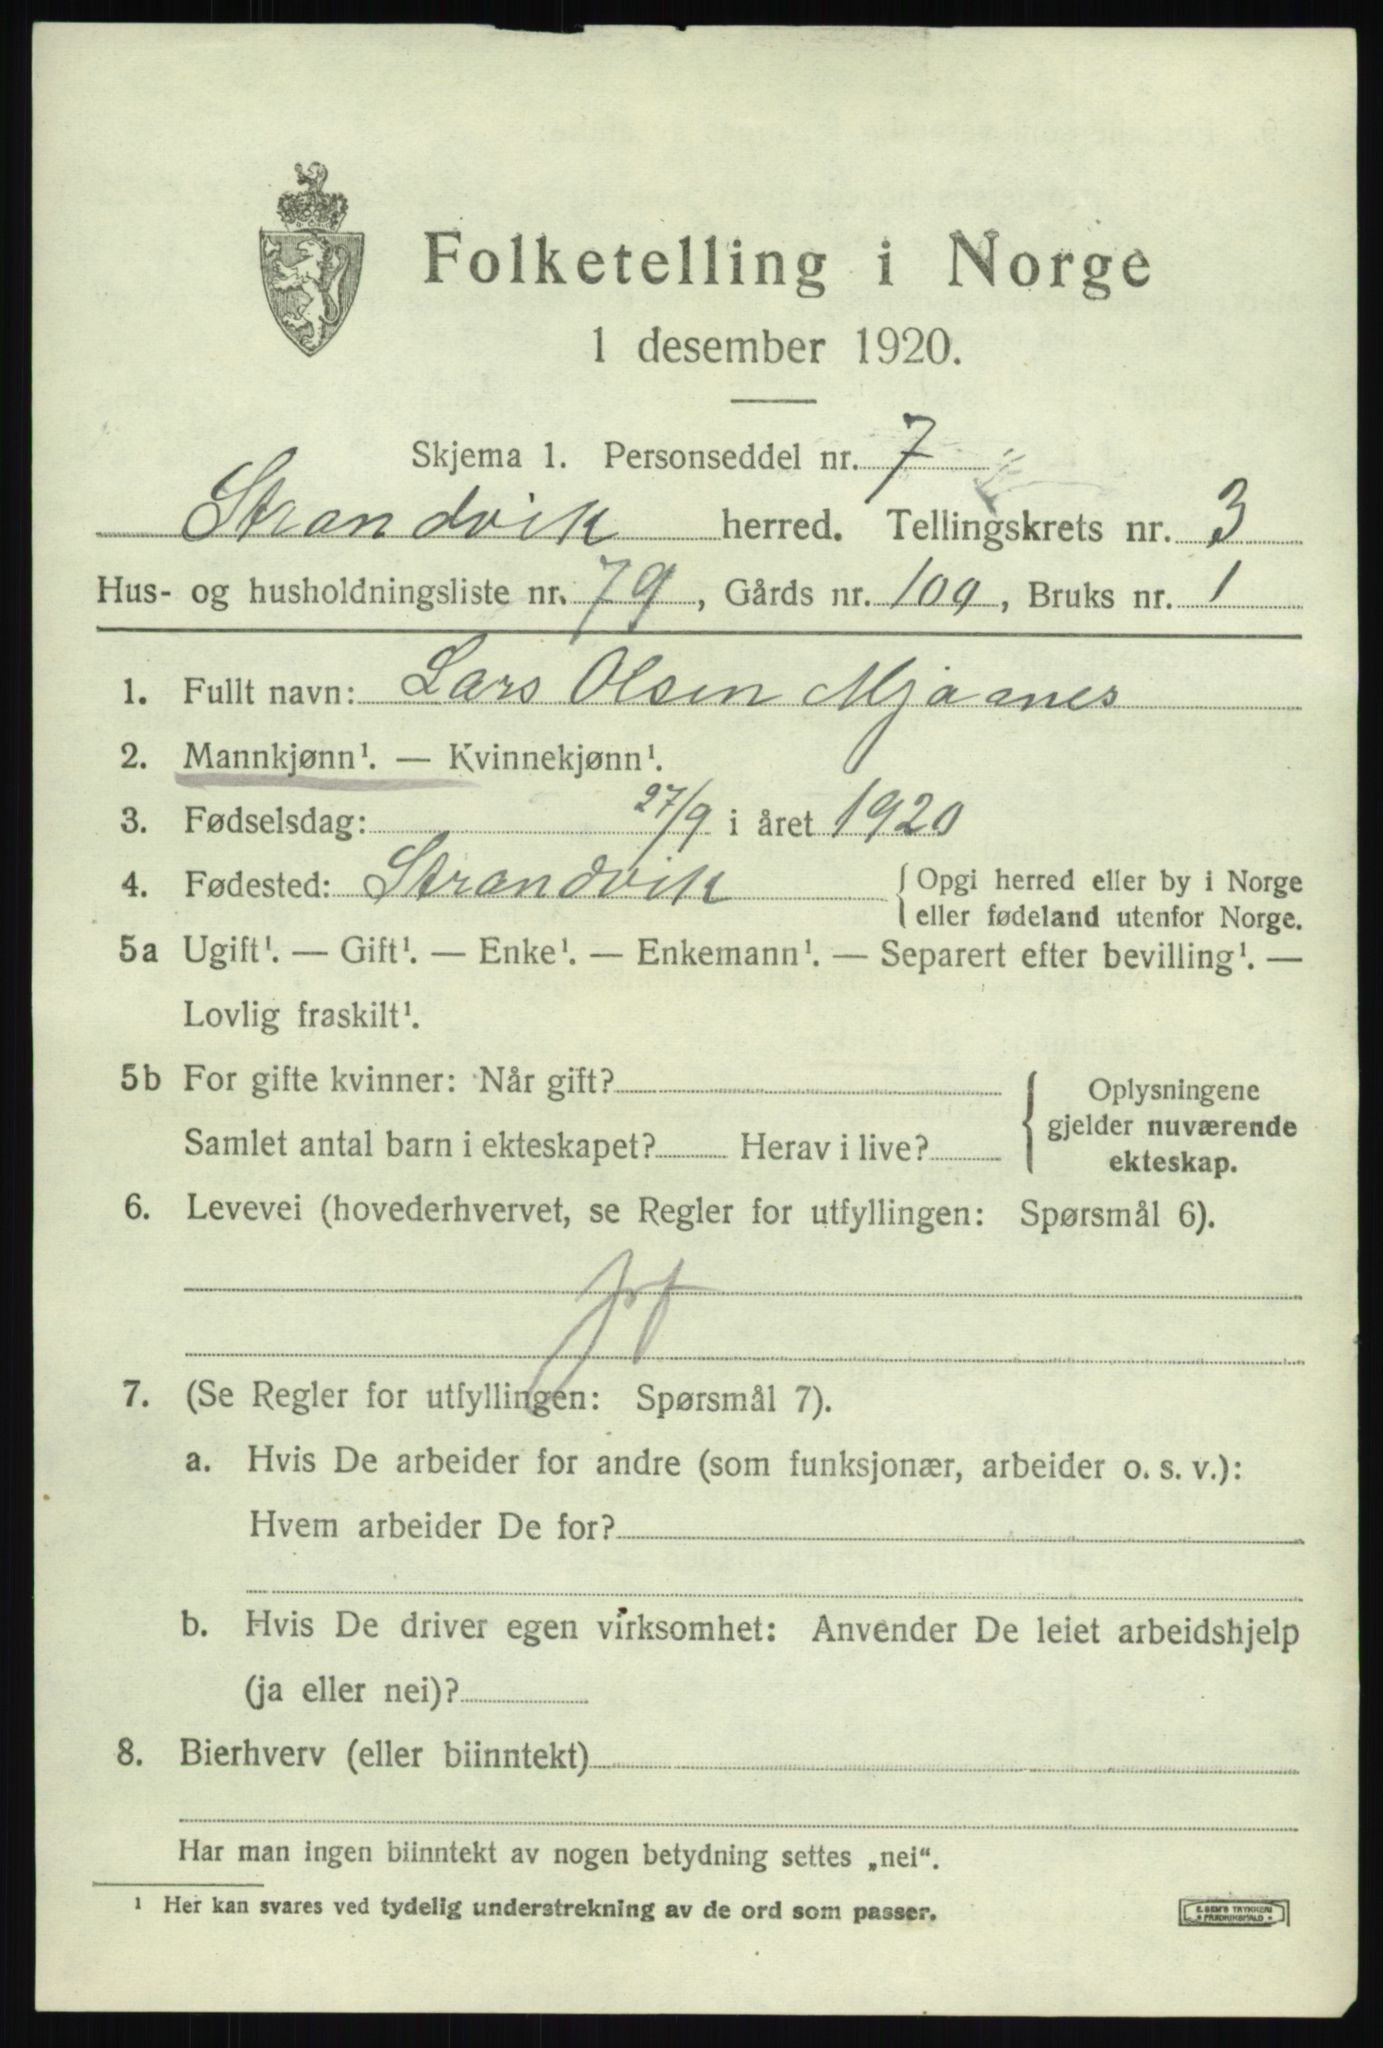 Folketelling i Norge
1 desember 1920.
Skjema 1. Personseddel nr. 7
Strandvik herred. Tellingskrets nr. 3
Hus- og husholdningsliste nr. 79, Gårds nr. 109, Bruks nr. 1
1. Fullt navn: Lars Olsen Mjaanes
2. Mannkjønn¹. — Kvinnekjønn¹.
3. Fødselsdag: 27/9 i året 1920
4. Fødested: Strandvik { Opgi herred eller by i Norge
eller fødeland utenfor Norge.
5a Ugift¹. — Gift¹. — Enke¹. — Enkemann¹. — Separert efter bevilling¹. —
Lovlig fraskilt¹.
5b For gifte kvinner: Når gift?
Samlet antal barn i ekteskapet? Herav i live?
{ Oplysningene
gjelder nuværende
ekteskap.
6. Levevei (hovederhvervet, se Regler for utfyllingen: Spørsmål 6).
7. (Se Regler for utfyllingen: Spørsmål 7).
a. Hvis De arbeider for andre (som funksjonær, arbeider o. s. v.):
Hvem arbeider De for?
b. Hvis De driver egen virksomhet: Anvender De leiet arbeidshjelp
(ja eller nei)?
8. Bierhverv (eller biinntekt)
Har man ingen biinntekt av nogen betydning settes „nei“.
¹ Her kan svares ved tydelig understrekning av de ord som passer.